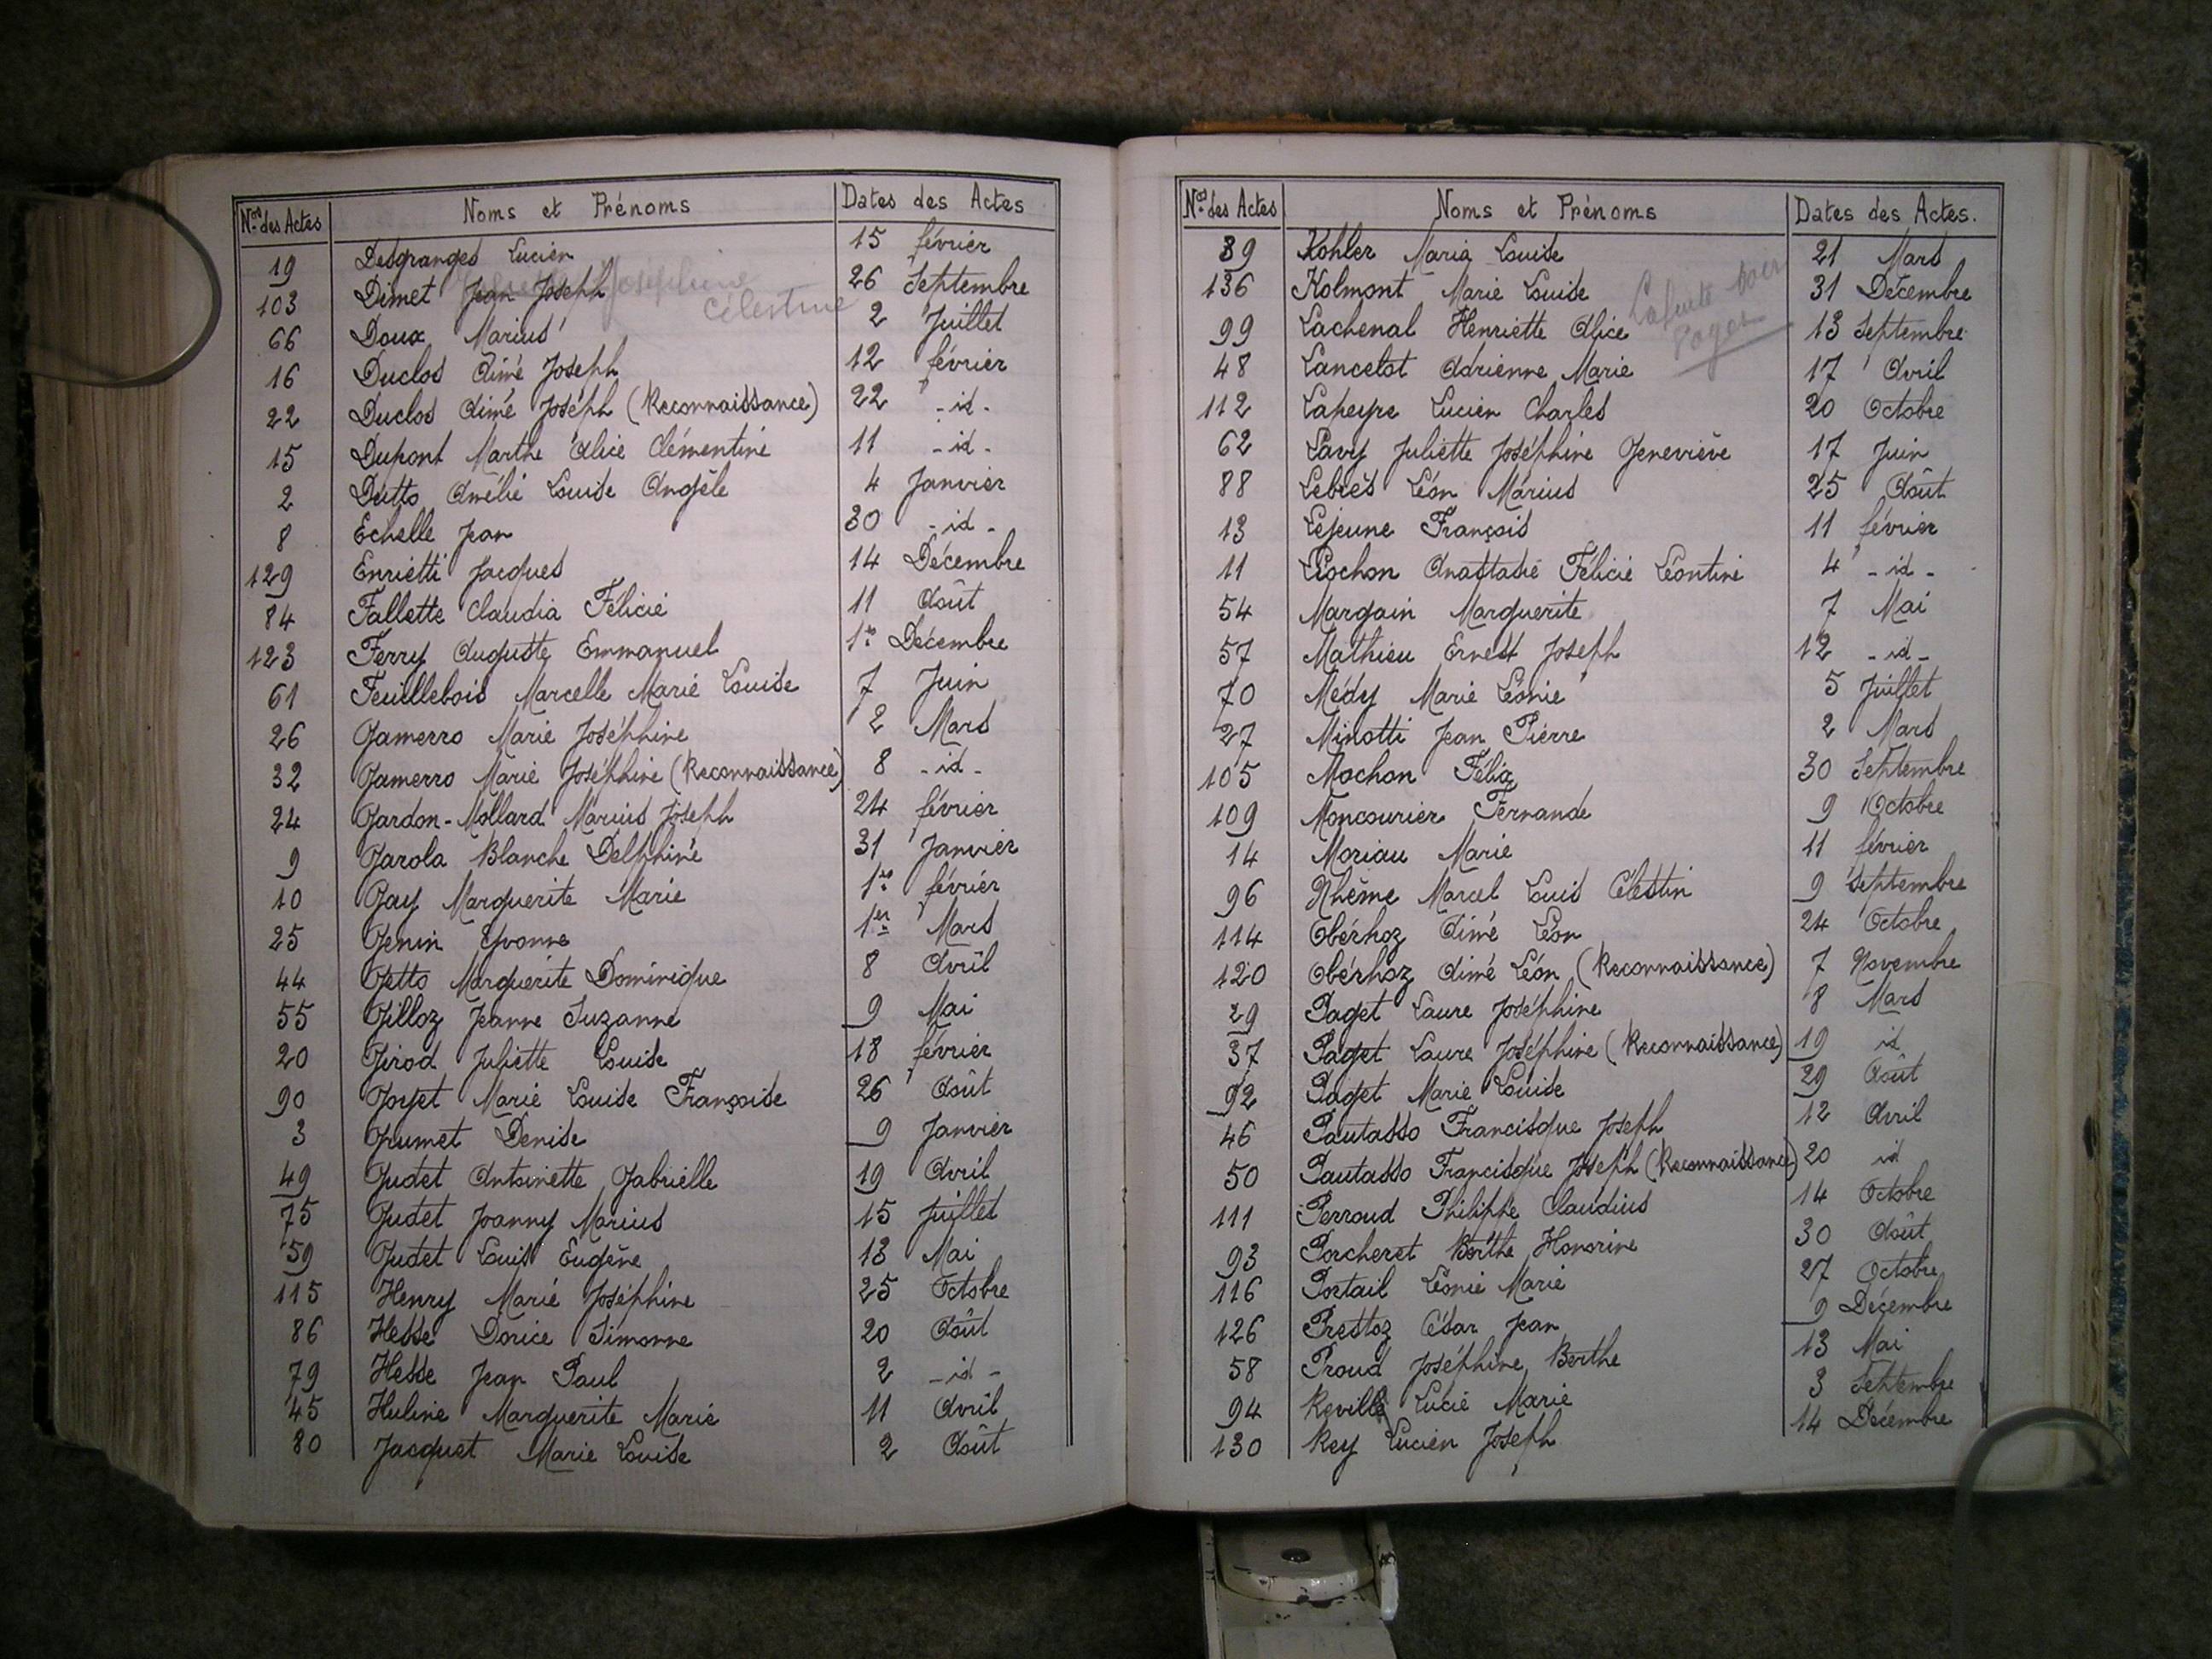 Nos des Actes Noms et Prénoms Dates des Actes
19 Desgranges Lucien 15 février
103 Dimet Jean Joseph Joséphine 26 Septembre
Célestine
66 Doux Marius 2 Juillet
16 Duclos Aimé Joseph 12 février
22 Duclos Aimé Joseph (Reconnaissance) 22 - id -
15 Dupont Marthe Alice Clémentine 11 - id -
2 Dutto Amélie Louise Angèle 4 Janvier
8 Echelle Jean 30 - id -
129 Enrietti Jacques 14 Décembre
84 Fallette Claudia Félicie 11 Août
123 Ferry Auguste Emmanuel 1er Décembre
61 Feuillebois Marcelle Marie Louise 7 Juin
26 Gamerro Marie Joséphine 2 Mars
32 Gamerro Marie Joséphine (Reconnaissance) 8 - id -
24 Gardon-Mollard Marius Joseph 24 février
9 Garola Blanche Delphine 31 Janvier
10 Gay Marguerite Marie 1er février
25 Genin Yvonne 1er Mars
44 Getto Marguerite Dominique 8 Avril
55 Gilloz Jeanne Suzanne 9 Mai
20 Girod Juliette Louise 18 février
90 Goyet Marie Louise Françoise 26 Août
3 Grumet Denise 9 Janvier
49 Gudet Antoinette Gabrielle 19 Avril
75 Gudet Joanny Marius 15 Juillet
59 Gudet Louis Eugène 13 Mai
115 Henry Marie Joséphine 25 Octobre
86 Hesse Dorice Simonne 20 Août
79 Hesse Jean Paul 2 - id -
45 Huline Marguerite Marie 11 Avril
80 Jacquet Marie Louise 2 Août
Nos des Actes Noms et Prénoms Dates des Actes.
39 Kohler Maria Louise 21 Mars
136 Kolmont Marie Louise 31 Décembre
99 Lachenal Henriette Alice 13 Septembre
48 Lancelot Adrienne Marie 17 Avril
112 Lapeyre Lucien Charles 20 Octobre
62 Lavy Juliette Joséphine Geneviève 17 Juin
88 Lebrès Léon Marius 25 Août
13 Lejeune François 11 février
11 Liochon Anastasie Félicie Léontine 4 - id -
54 Margain Marguerite 7 Mai
57 Mathieu Ernest Joseph 12 - id -
70 Médy Marie Léonie 5 Juillet
27 Minotti Jean Pierre 2 Mars
105 Mochon Félix 30 Septembre
109 Moncourier Fernande 9 Octobre
14 Moriau Marie 11 février
96 Nhême Marcel Louis Célestin 9 Septembre
114 Obérhoz Aimé Léon 24 Octobre
120 Obérhoz Aimé Léon (Reconnaissance) 7 Novembre
29 Paget Laure Joséphine 8 Mars
37 Paget Laure Joséphine (Reconnaissance) 19 id
92 Paget Marie Louise 29 Août
46 Pautasso Francisque Joseph 12 Avril
50 Pautasso Francisque Joseph (Reconnaissance) 20 id
111 Perroud Philippe Claudius 14 Octobre
93 Porcheret Berthe Honorine 30 Août
116 Portail Léonie Marie 27 Octobre
126 Prestoz César Jean 9 Décembre
58 Proud Joséphine Berthe 13 Mai
94 Revillé Lucie Marie 3 Septembre
130 Rey Lucien Joseph 14 Décembre